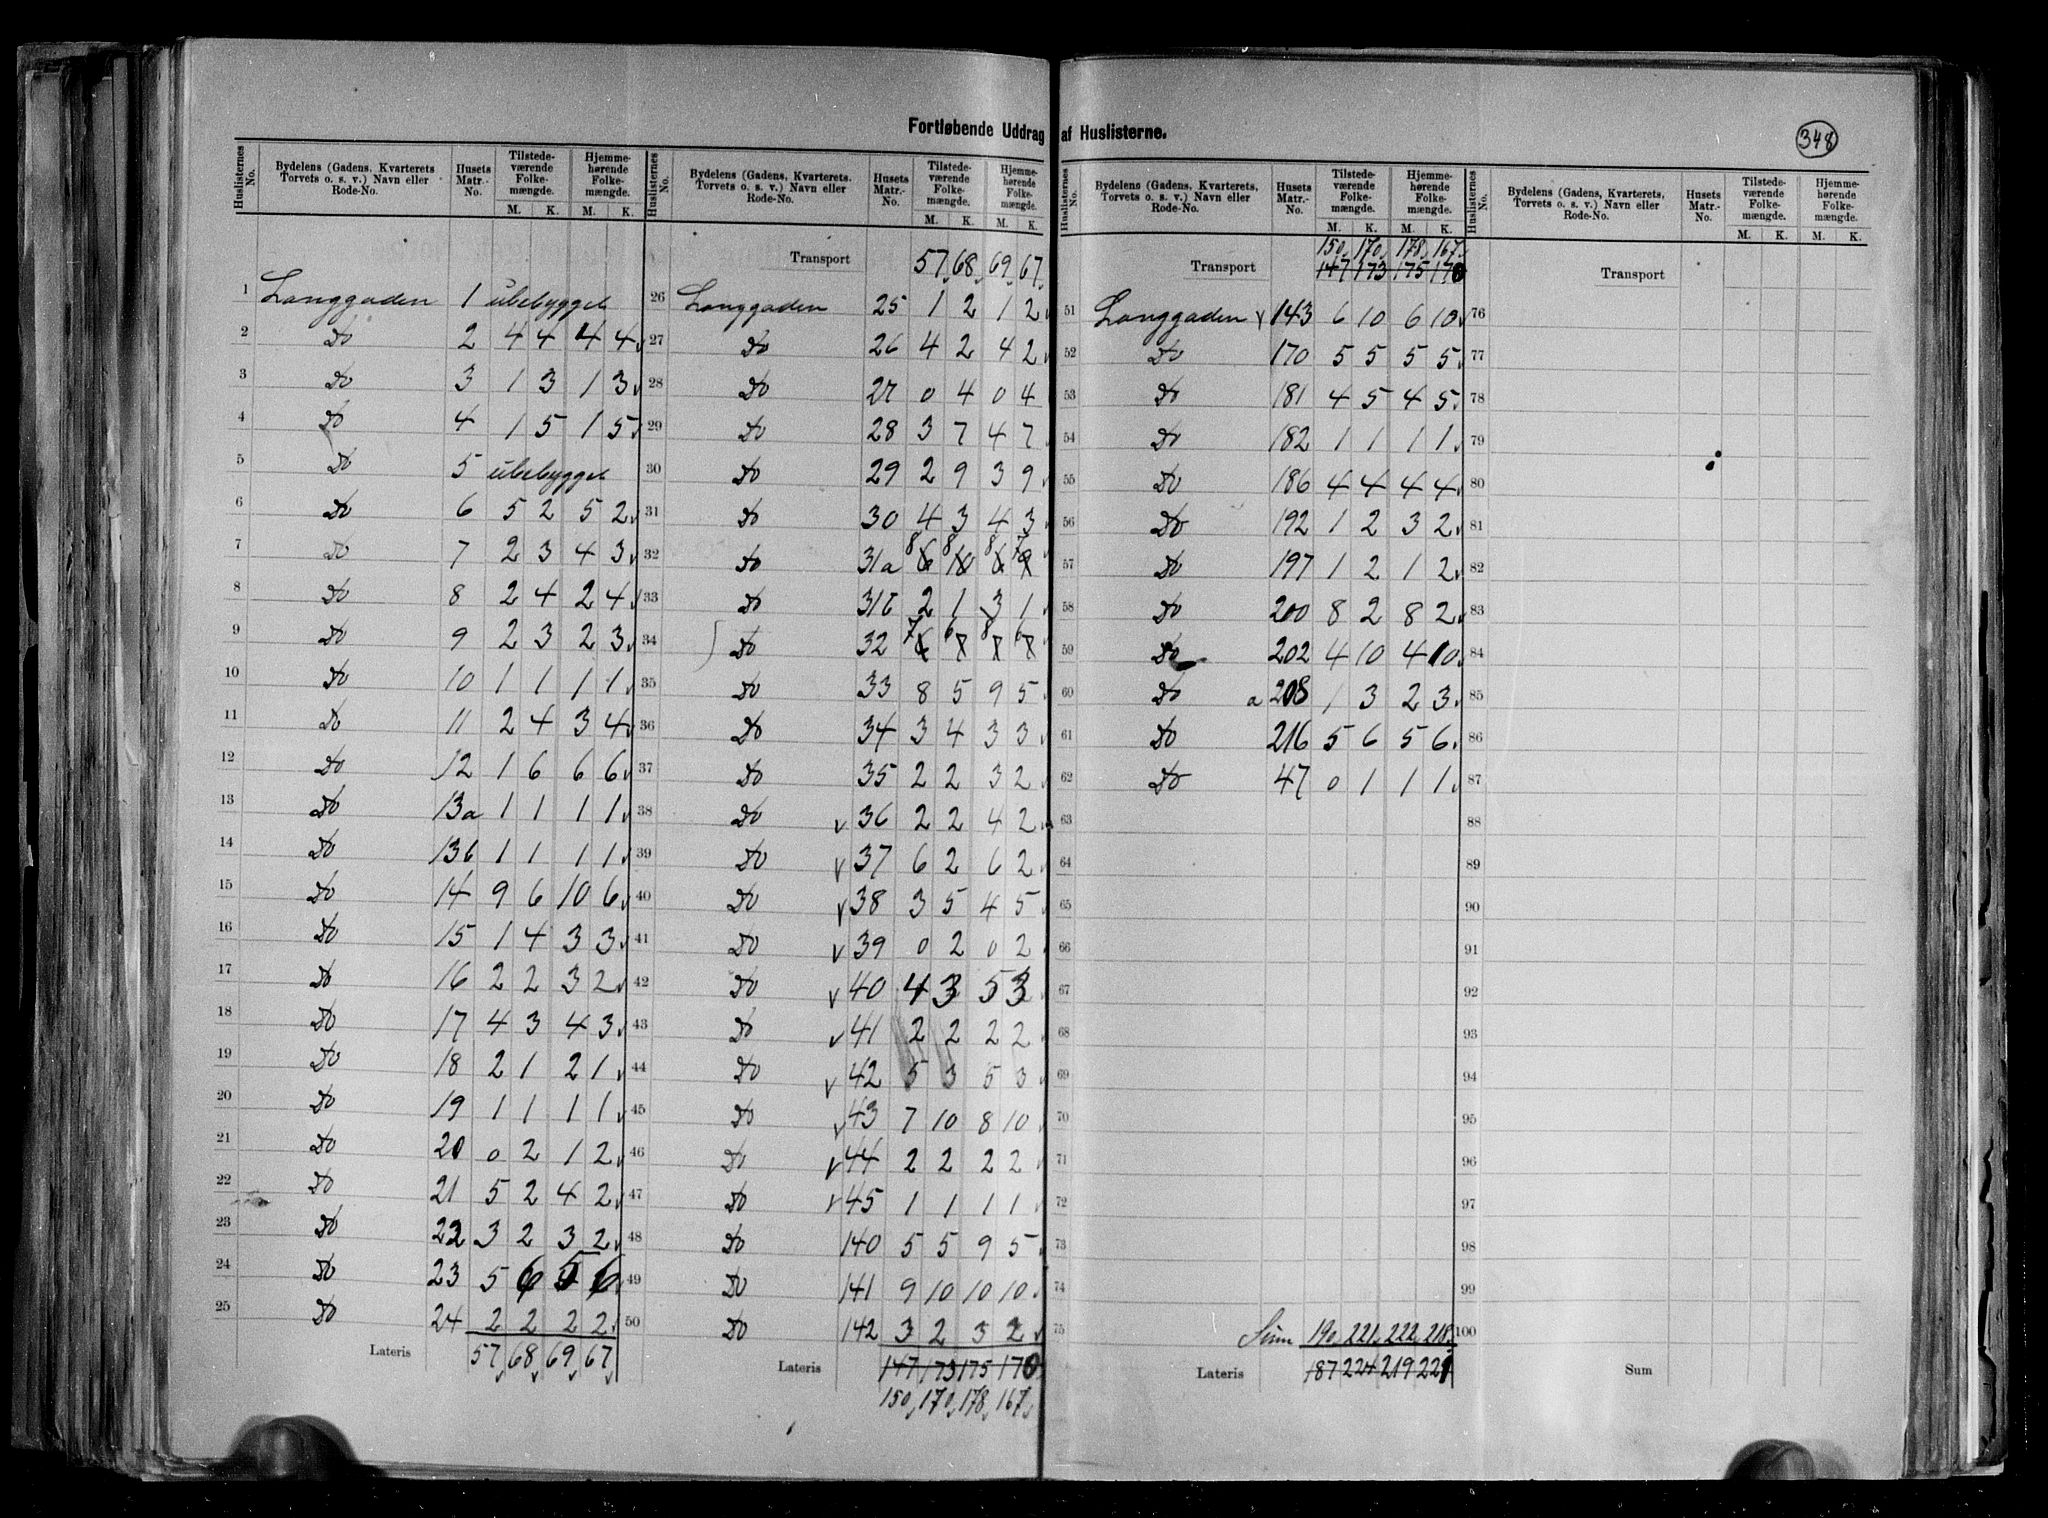 Fortløbende Uddrag af Huslisterne.
348
Huslisternes No. | Bydelens (Gadens, Kvarterets Torvets o. s. v.) Navn eller Rode-No. | Husets Matr.-No. | Tilstedeværende Folkemængde. M. K. | Hjemmehørende Folkemængde. M. K.
1 Langgaden 1 ubebygget
2 Do 2 4 4 4 4
3 Do 3 1 3 1 3
4 Do 4 1 5 1 5
5 Do 5 ubebygget
6 Do 6 5 2 5 2
7 Do 7 2 3 4 3
8 Do 8 2 4 2 4
9 Do 9 2 3 2 3
10 Do 10 1 1 1 1
11 Do 11 2 4 3 4
12 Do 12 1 6 6 6
13 Do 13a 1 1 1 1
14 Do 13b 1 1 1 1
15 Do 14 9 6 10 6
16 Do 15 1 4 3 3
17 Do 16 2 2 3 2
18 Do 17 4 3 4 3
19 Do 18 2 1 2 1
20 Do 19 1 1 1 1
21 Do 20 0 2 1 2
22 Do 21 5 2 4 2
23 Do 22 3 2 3 2
24 Do 23 5 6 5 6
25 Do 24 2 2 2 2
Lateris 57 68 69 67
Huslisternes No. | Bydelens (Gadens, Kvarterets, Torvets o. s. v.) Navn eller Rode-No. | Husets Matr.-No. | Tilstedeværende Folkemængde. M. K. | Hjemmehørende Folkemængde. M. K.
Transport 57 68 69 67
26 Langgaden 25 1 2 1 2
27 Do 26 4 2 4 2
28 Do 27 0 4 0 4
29 Do 28 3 7 4 7
30 Do 29 2 9 3 9
31 Do 30 4 3 4 3
32 Do 31a 8 8 8 7
33 Do 31b 2 1 3 1
34 Do 32 7 6 8 6
35 Do 33 8 5 9 5
36 Do 34 3 4 3 3
37 Do 35 2 2 3 2
38 Do 36 2 2 4 2
39 Do 37 6 2 6 2
40 Do 38 3 5 4 5
41 Do 39 0 2 0 2
42 Do 40 4 3 5 3
43 Do 41 2 2 2 2
44 Do 42 5 3 5 3
45 Do 43 7 10 8 10
46 Do 44 2 2 2 2
47 Do 45 1 1 1 1
48 Do 140 5 5 9 5
49 Do 141 9 10 10 10
50 Do 142 3 2 3 2
Lateris 147 173 175 170
150 170 178 167
Huslisternes No. | Bydelens (Gadens, Kvarterets, Torvets o. s. v.) Navn eller Rode-No. | Husets Matr.-No. | Tilstedeværende Folkemængde. M. K. | Hjemmehørende Folkemængde. M. K.
150 170 178 167
Transport 147 173 175 170
51 Langgaden 143 6 10 6 10
52 Do 170 5 5 5 5
53 Do 181 4 5 4 5
54 Do 182 1 1 1 1
55 Do 186 4 4 4 4
56 Do 192 1 2 3 2
57 Do 197 1 2 1 2
58 Do 200 8 2 8 2
59 Do 202 4 10 4 10
60 Do a 208 1 3 2 3
61 Do 216 5 6 5 6
62 Do 47 0 1 1 1
63
64
65
66
67
68
69
70
71
72
73
74
75
Sum 190 221 222 218
Lateris 187 224 219 221
Huslisternes No. | Bydelens (Gadens, Kvarterets, Torvets o. s. v.) Navn eller Rode-No. | Husets Matr.-No. | Tilstedeværende Folkemængde. M. K. | Hjemmehørende Folkemængde. M. K.
Transport
76
77
78
79
80
81
82
83
84
85
86
87
88
89
90
91
92
93
94
95
96
97
98
99
100
Sum